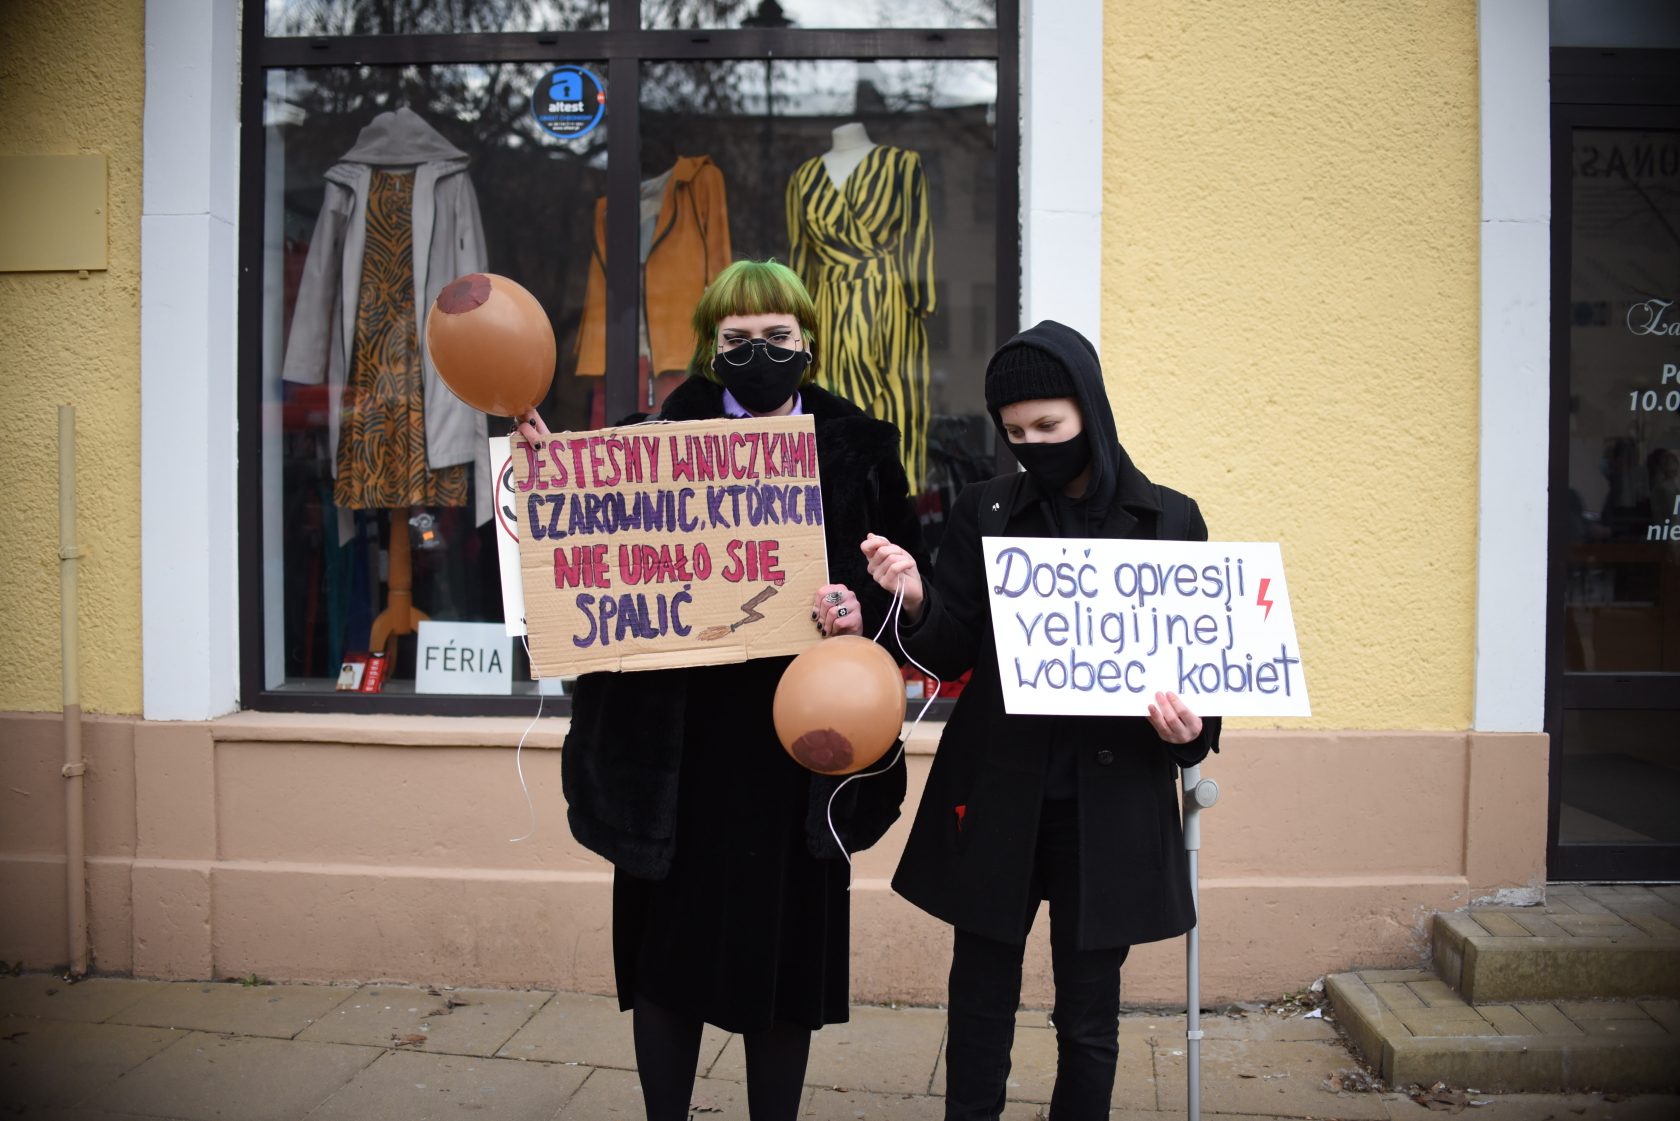 altest
JESTEŚMY WNUCZKAMI
CZAROWNIC, KTÓRYCH
NIE UDAŁO SIĘ
SPALIĆ
Dość opresji
religijnej
wobec kobiet
FÉRIA
10.0
nie